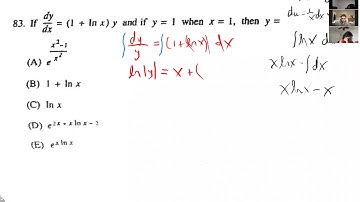 83. If dy/dx = (1 + ln x) y and if y = 1 when x = 1, then y =
(A) e^((x²-1)/x²)
(B) 1 + ln x
(C) ln x
(D) e^(2x + x ln x - 2)
(E) e^(x ln x)
∫ dy/y = ∫(1+lnx) dx
ln|y| = x + (
du = 1/x dx
∫ln x dx
x ln x - ∫dx
x ln x - x